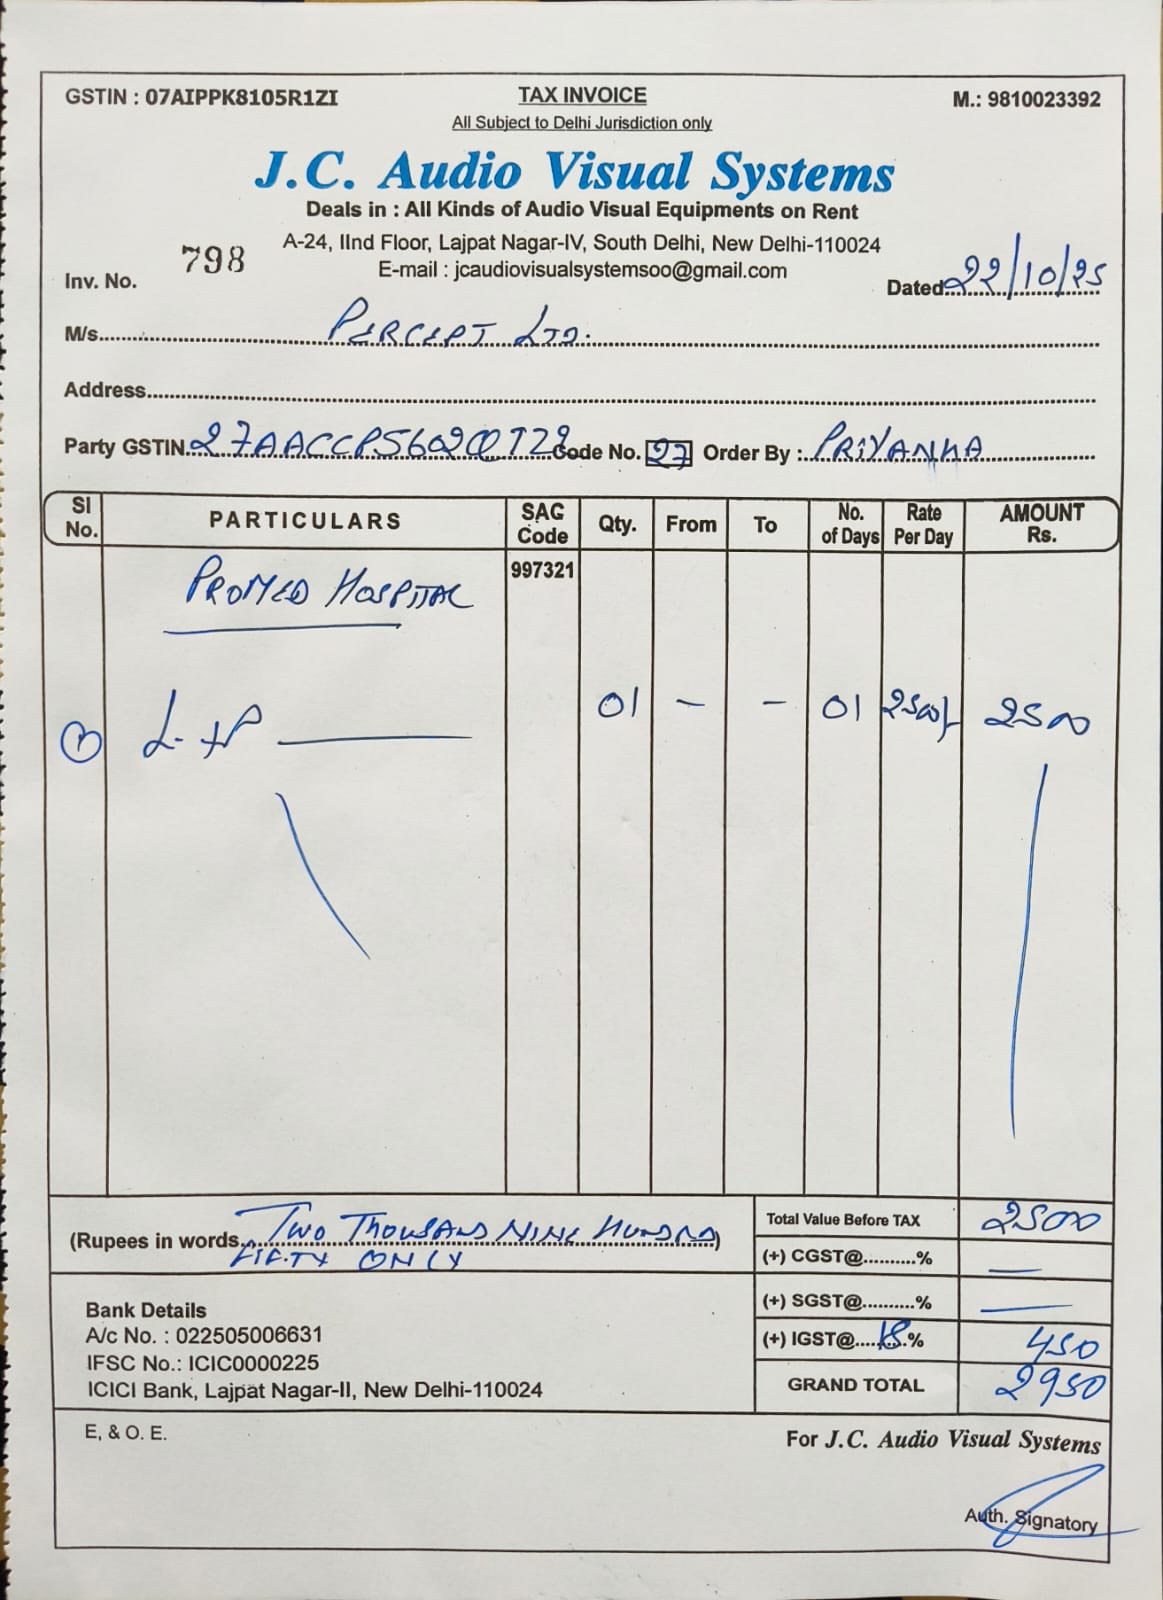 GSTIN : 07AIPPK8105R1ZI TAX INVOICE M.: 9810023392
All Subject to Delhi Jurisdiction only
J.C. Audio Visual Systems
Deals in : All Kinds of Audio Visual Equipments on Rent
A-24, IInd Floor, Lajpat Nagar-IV, South Delhi, New Delhi-110024
E-mail : jcaudiovisualsystemsoo@gmail.com
Inv. No. 798 Dated 22/10/25
M/s. PERCEPT LTD.
Address
Party GSTIN. Code No. 27 Order By : PRIYANKA
Sl No. PARTICULARS SAC Code Qty. From To No. of Days Rate Per Day AMOUNT Rs.
PROMED HOSPITAL 997321
1 01 - - 01 2500/- 2500
(Rupees in words TWO THOUSAND NINE HUNDRD)
FIFTY ONLY
Total Value Before TAX 2500
(+) CGST@..........% —
(+) SGST@..........% —
(+) IGST@ 18 % 450
GRAND TOTAL 2950
Bank Details
A/c No. : 022505006631
IFSC No.: ICIC0000225
ICICI Bank, Lajpat Nagar-II, New Delhi-110024
E, & O. E.
For J.C. Audio Visual Systems
Auth. Signatory